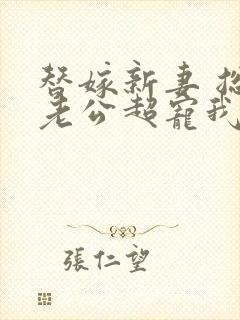 替嫁新妻 总
老公超寵我
張仁望